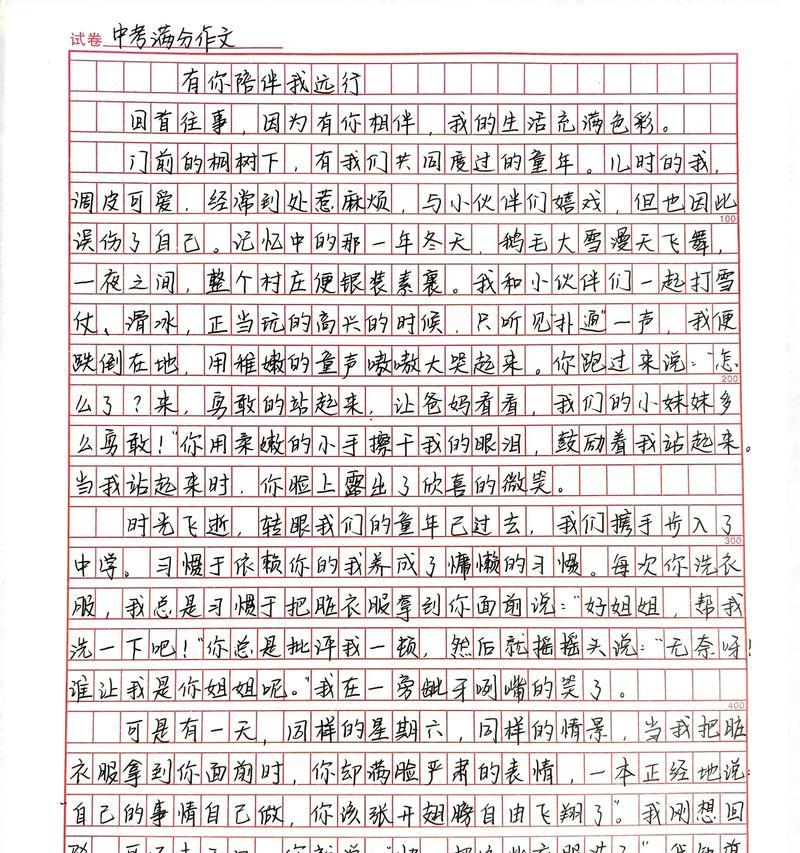 试卷 中考满分作文
有你陪伴我远行
回首往事，因为有你相伴，我的生活充满色彩。
门前的桐树下，有我们共同度过的童年。儿时的我，
调皮可爱，经常到处惹麻烦，与小伙伴们嬉戏，但也因此
100
误伤了自己。记忆中的那一年冬天，鹅毛大雪漫天飞舞，
一夜之间，整个村庄便银装素裹。我和小伙伴们一起打雪
仗、滑冰，正当玩的高兴的时候，只听见"扑通"一声，我便
跌倒在地，用稚嫩的童声嗷嗷大哭起来。你跑过来说："怎
200
么了？来，勇敢的站起来，让爸妈看看，我们的小妹妹多
么勇敢！"你用柔嫩的小手擦干我的眼泪，鼓励着我站起来。
当我站起来时，你脸上露出了欣喜的微笑。
时光飞逝，转眼我们的童年已过去，我们携手步入了
300
中学。习惯于依赖你的我养成了慵懒的习惯。每次你洗衣
服，我总是习惯于把脏衣服拿到你面前说："好姐姐，帮我
洗一下吧！"你总是批评我一顿，然后就摇摇头说："无奈呀！
谁让我是你姐姐呢。"我在一旁龇牙咧嘴的笑了。
400
可是有一天，同样的星期六，同样的情景，当我把脏
衣服拿到你面前时，你却满脸严肃的表情，一本正经地说：
"自己的事情自己做，你该张开翅膀自由飞翔了"。我刚想回